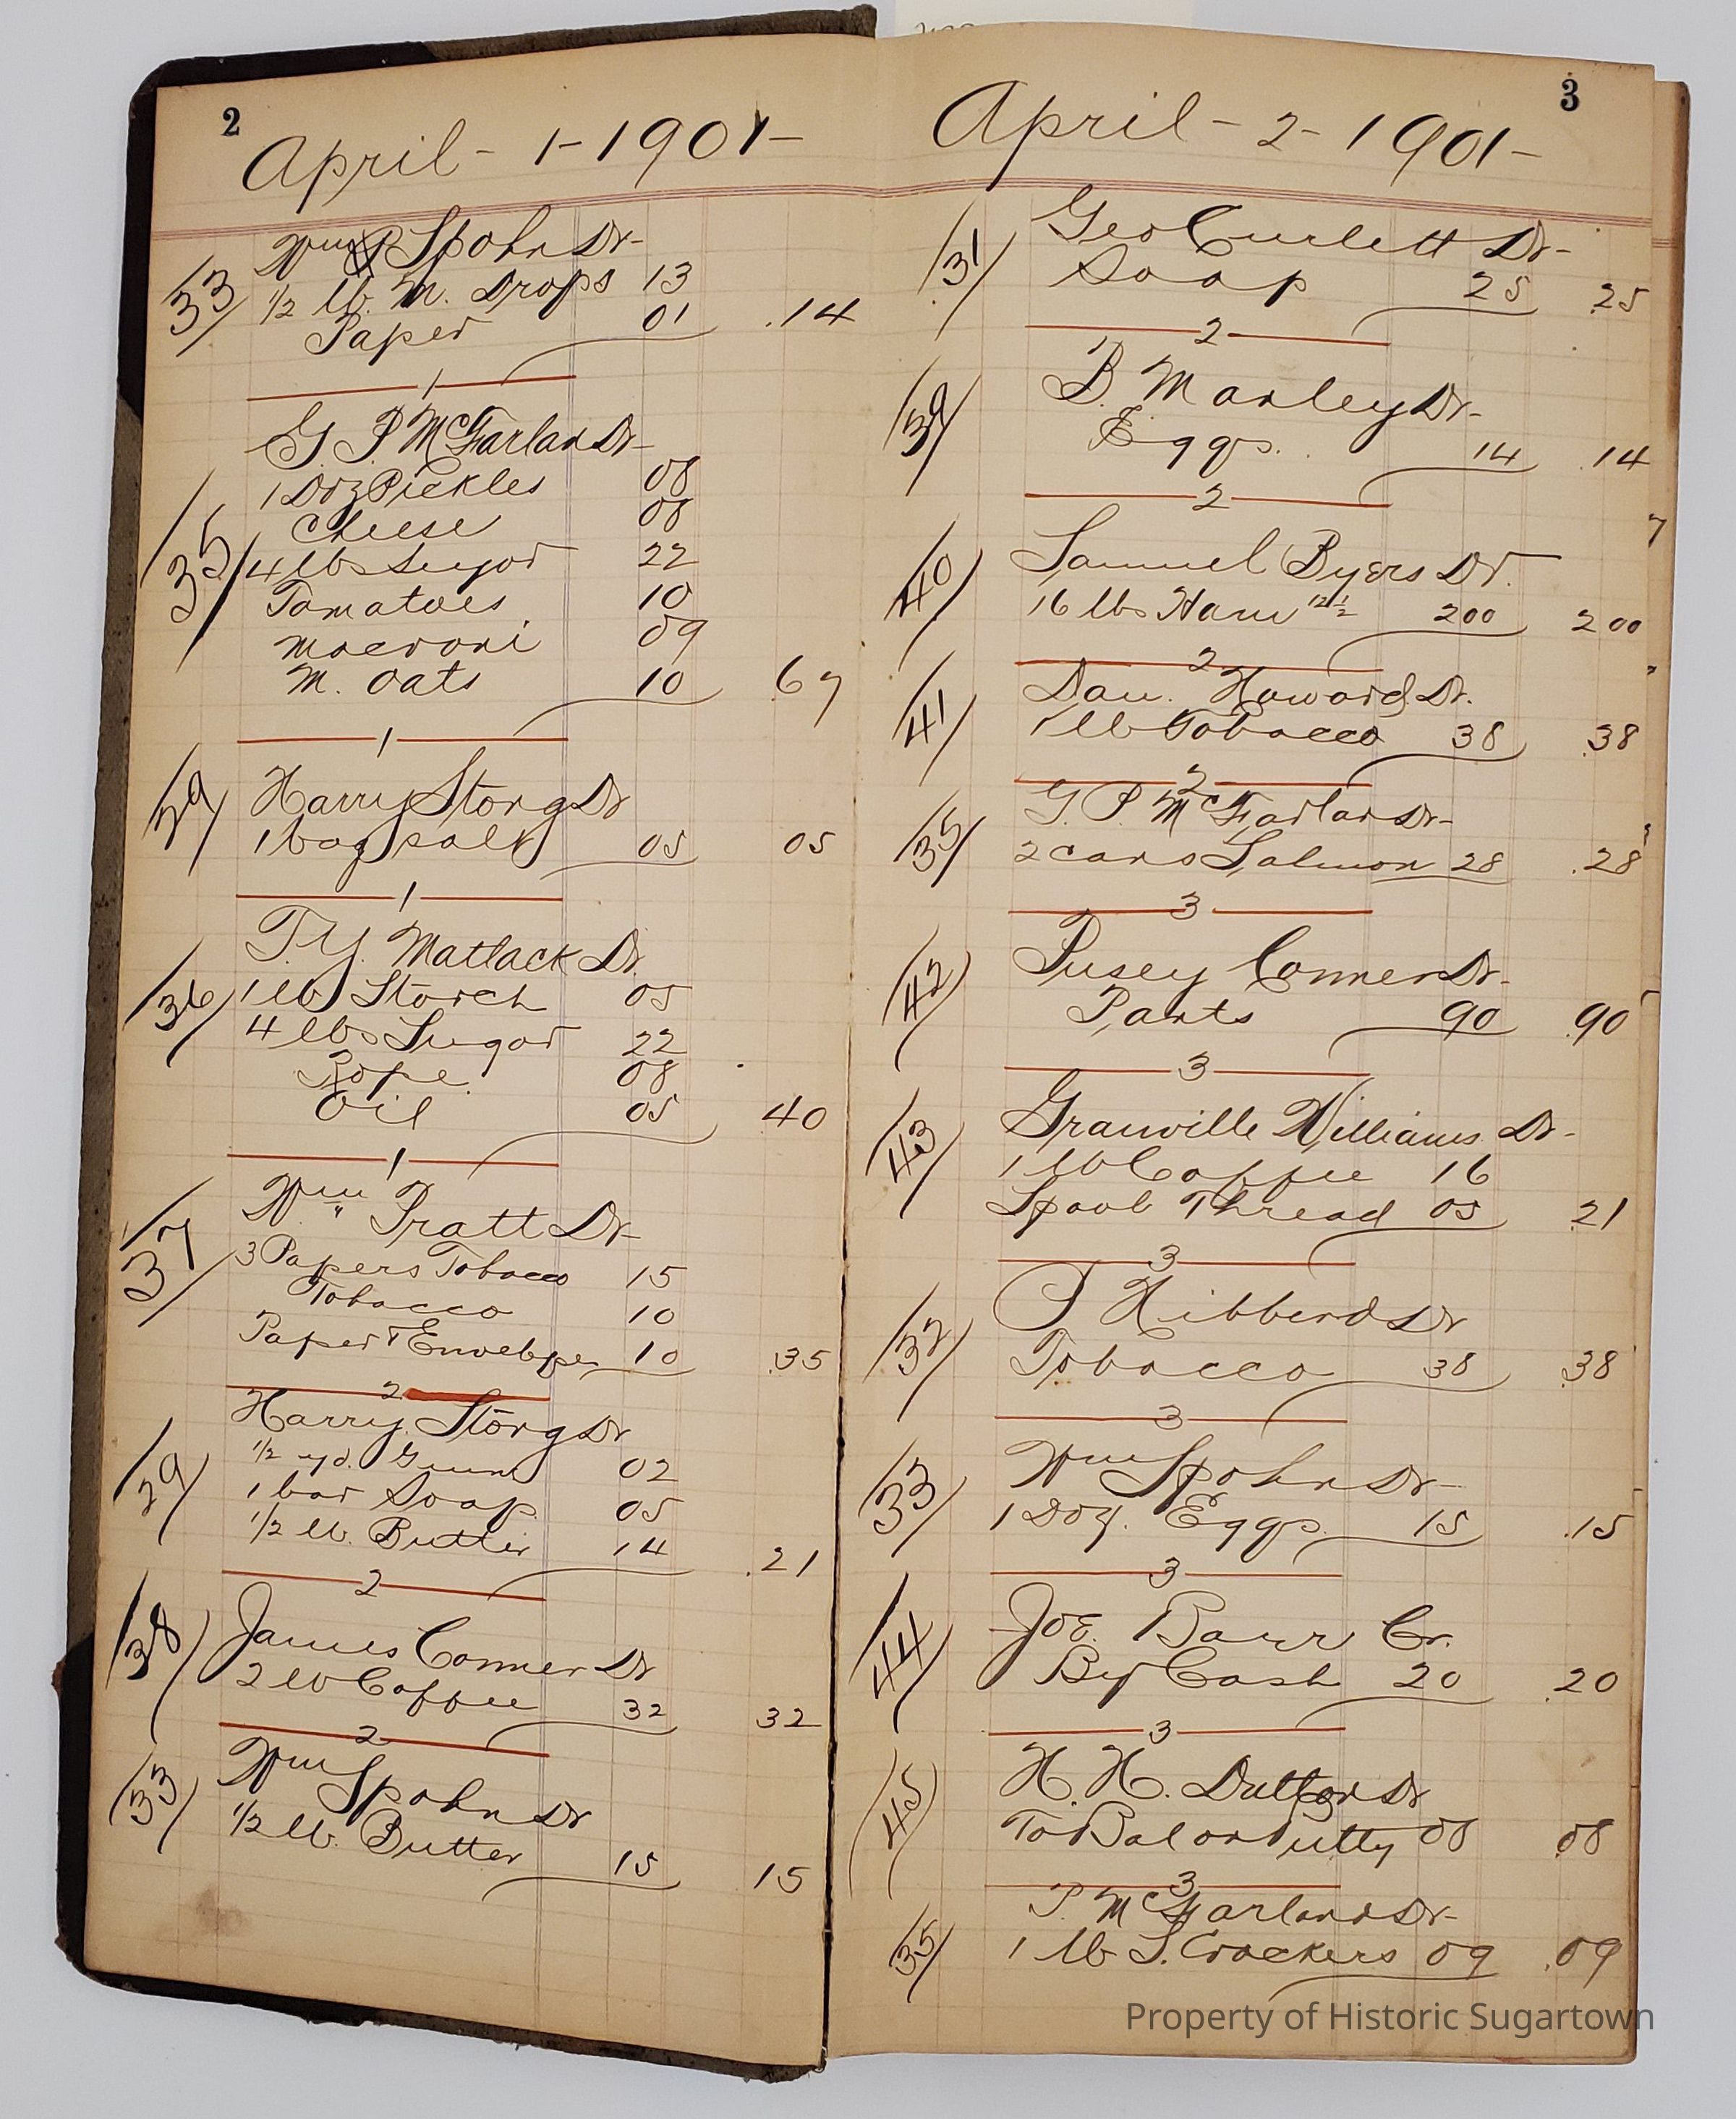 2
April - 1 - 1901 -
33 Wm Spohn Dr-
1/2 lb. M. Drops 13
Paper 01 .14
1
G. P. McFarlan Dr-
1 Doz Pickles 08
Cheese 08
35 4 lbs Sugar 22
Tomatoes 10
Macroni 09
M. Oats 10 67
1
29 Harry Storg Dr
1 bag salt 05 05
1
T. Y. Matlack Dr.
36 1 lb Starch 05
4 lbs Sugar 22
Rope 08
Oil 05 40
1
Wm Pratt Dr-
37 3 Papers Tobacco 15
Tobacco 10
Paper & Envelope 10 .35
2
Harry Storg Dr
29 1/2 yd. 02
1 bar Soap 05
1/2 lb. Butter 14 .21
2
38 James Conner Dr
2 lb Coffee 32 32
2
33 Wm Spohn Dr
1/2 lb. Butter 15 15
3
April - 2 - 1901 -
31 Geo Curlett Dr-
Soap 25 .25
2
39 B. Marley Dr-
Eggs 14 .14
2
40 Samuel Byers Dr.
16 lbs Ham 12 1/2 200 200
2
41 Dan. Howard Dr.
1 lb Tobacco 38 .38
2
35 G. P. McFarlan Dr-
2 cans Salmon 28 .28
3
42 Pusey Conner Dr-
Pants 90 .90
3
43 Granville Williams Dr-
1 lb Coffee 16
Spool Thread 05 .21
3
32 P Hibberd Dr
Tobacco 38 .38
3
33 Wm Spohn Dr-
1 Doz. Eggs 15 .15
3
44 Joe. Barr Cr.
By Cash 20 .20
3
45 H. H. Dutton Dr
To Bal on Putty 08 .08
3
P. McFarland Dr-
35 1 lb S. Crackers 09 .09
Property of Historic Sugartown